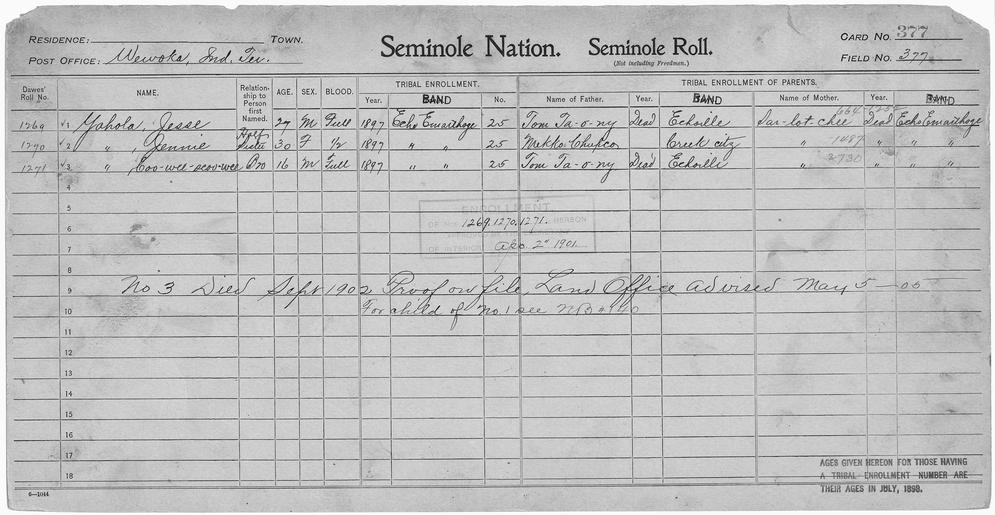 RESIDENCE: TOWN.
POST OFFICE: Wewoka, Ind. Ter.
Seminole Nation. Seminole Roll.
(Not including Freedmen.)
CARD NO. 377
FIELD NO. 377
Dawes' Roll No. NAME. Relationship to Person first Named. AGE. SEX. BLOOD. TRIBAL ENROLLMENT. TRIBAL ENROLLMENT OF PARENTS.
Year. BAND No. Name of Father. Year. BAND Name of Mother. Year. BAND
1269 1 Yahola, Jesse 27 M Full 1897 Echo Emarthoge 25 Tom Ta-o-ny Dead Echoille Sar-lot-chee Dead Echo Emarthoge
1270 2 " , Jennie Half Sister 30 F 1/2 1897 " " 25 Mekko Chupco Creek city " " "
1271 3 " , Coo-wee-scoo-wee Bro 16 M Full 1897 " " 25 Tom Ta-o-ny Dead Echoille " " "
4
5
ENROLLMENT
6
OF NOS. 1269.1270.1271. HEREON
7
OF INTERIOR Apr. 2" 1901.
8
9 No 3 Died Sept 1902 Proof on file, Land Office advised May 5-05
10 For child of No. 1 see NB # 40
11
12
13
14
15
16
17
18
AGES GIVEN HEREON FOR THOSE HAVING
A TRIBAL ENROLLMENT NUMBER ARE
THEIR AGES IN JULY, 1898.
6—1044